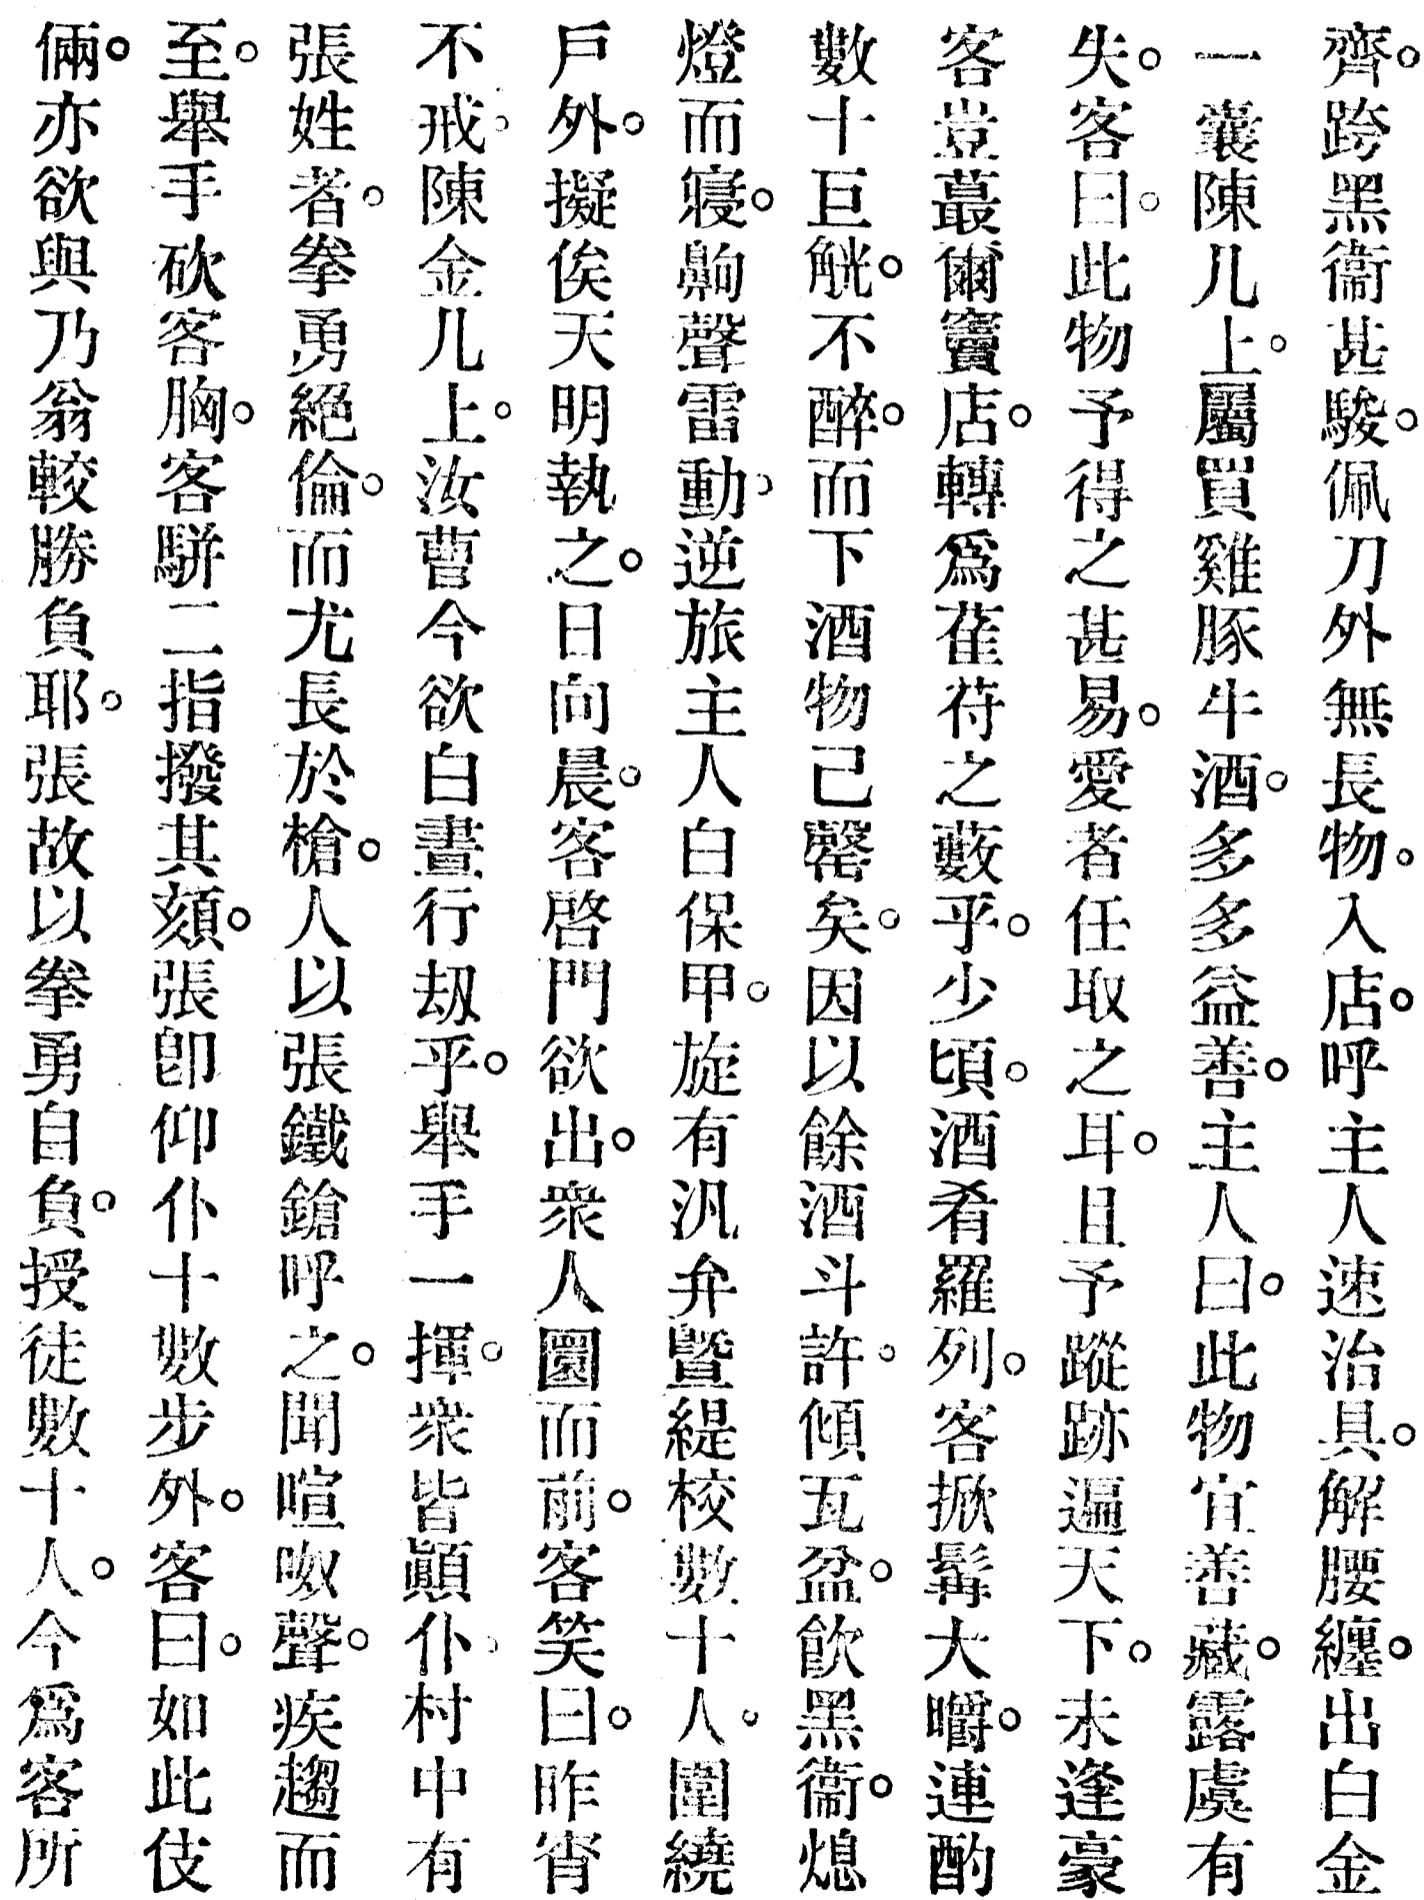 齊。跨黑衞甚駿。佩刀外無長物。入店。呼主人速治具。解腰纏。出白金
一囊陳几上。屬買雞豚牛酒。多多益善。主人曰。此物宜善藏。露虞有
失。客曰。此物予得之甚易。愛者任取之耳。且予蹤跡遍天下。未逢豪
客豈蕞爾竇店。轉爲萑苻之藪乎。少頃。酒肴羅列。客掀髯大嚼。連酌
數十巨觥。不醉。而下酒物已罄矣。因以餘酒斗許。傾瓦盆。飮黑衞。熄
燈而寢。鼾聲雷動。逆旅主人白保甲。旋有汛弁曁緹校數十人。圍繞
戶外。擬俟天明執之。日向晨。客啓門欲出。衆人圜而前。客笑曰。昨宵
不戒。陳金几上。汝曹今欲白晝行刼乎。舉手一揮。衆皆顚仆。村中有
張姓者。拳勇絕倫。而尤長於槍。人以張鐵鎗呼之。聞喧呶聲。疾趨而
至。舉手砍客胸。客騈二指撥其頦。張卽仰仆十數步外。客曰。如此伎
倆。亦欲與乃翁較勝負耶。張故以拳勇自負。授徒數十人。今爲客所